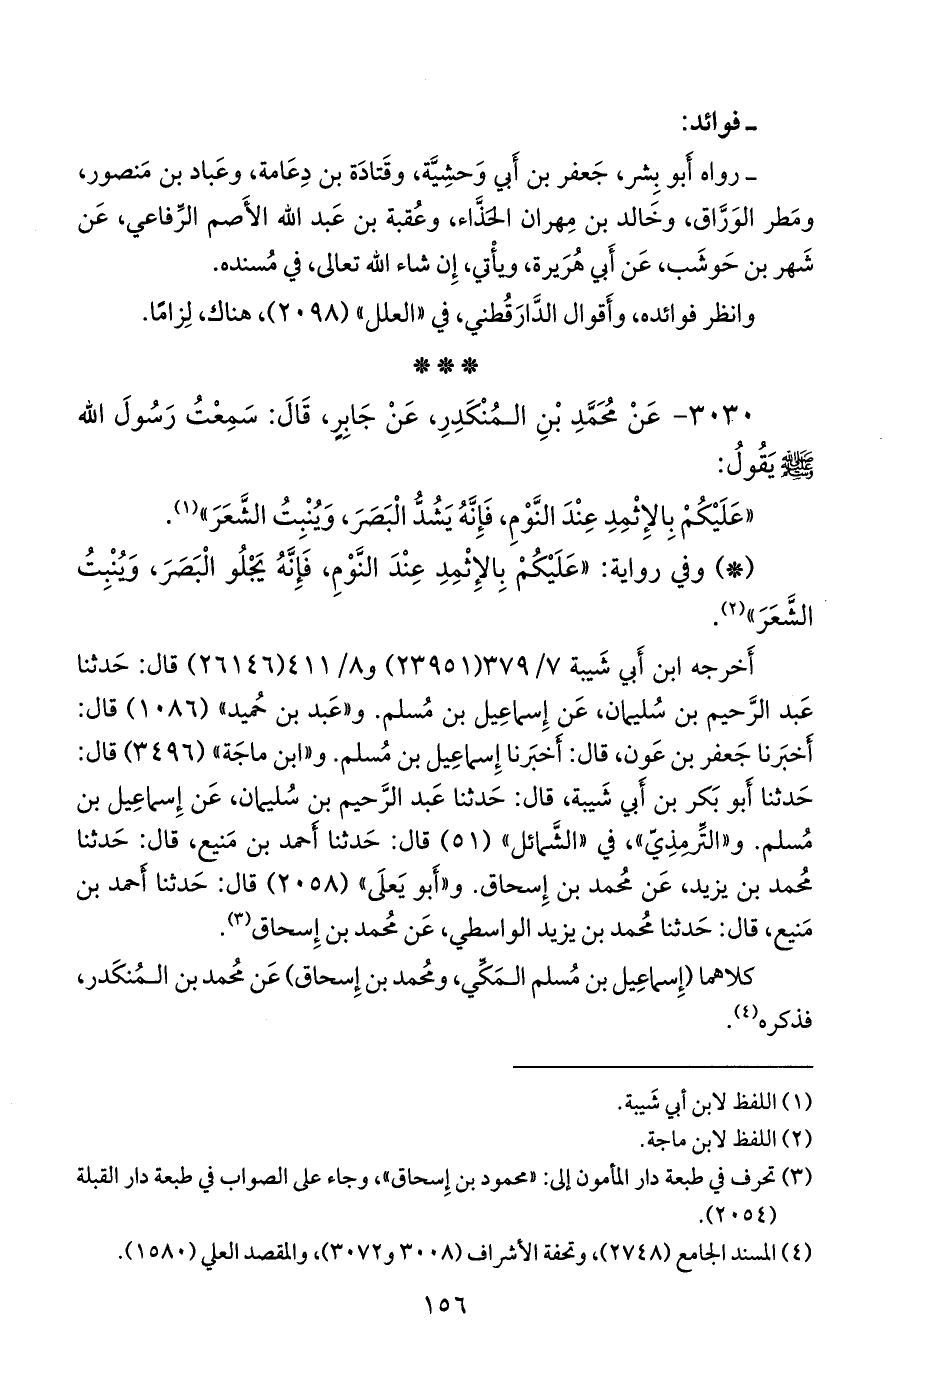 ـ فوائد:
ـ رواه أَبو بِشر، جَعفر بن أَبي وَحشِيَّة، وقَتادَة بن دِعَامة، وعَباد بن مَنصور،
ومَطر الوَرَّاق، وخَالد بن مِهران الحَذَّاء، وعُقبة بن عَبد الله الأَصم الرِّفاعي، عَن
شَهر بن حَوشَب، عَن أَبي هُرَيرة، ويأْتي، إِن شاء الله تعالى، في مُسنده.
وانظر فوائده، وأَقوال الدَّارَقُطني، في «العلل» (٢٠٩٨)، هناك، لِزامًا.
* * *
٣٠٣٠- عَنْ مُحَمَّدِ بْنِ الـمُنْكَدِرِ، عَنْ جَابِرٍ، قَالَ: سَمِعْتُ رَسُولَ الله
ﷺ يَقُولُ:
«عَلَيْكُمْ بِالإِثْمِدِ عِنْدَ النَّوْمِ، فَإِنَّهُ يَشُدُّ الْبَصَرَ، وَيُنْبِتُ الشَّعَرَ»(١).
(*) وفي رواية: «عَلَيْكُمْ بِالإِثْمِدِ عِنْدَ النَّوْمِ، فَإِنَّهُ يَجْلُو الْبَصَرَ، وَيُنْبِتُ
الشَّعَرَ»(٢).
أَخرجه ابن أَبي شَيبة ٧/ ٣٧٩(٢٣٩٥١) و٨/ ٤١١(٢٦١٤٦) قال: حَدثنا
عَبد الرَّحيم بن سُليمان، عَن إِسماعِيل بن مُسلم. و«عَبد بن حُميد» (١٠٨٦) قال:
أَخبَرنا جَعفر بن عَون، قال: أَخبَرنا إِسماعِيل بن مُسلم. و«ابن ماجَة» (٣٤٩٦) قال:
حَدثنا أَبو بَكر بن أَبي شَيبة، قال: حَدثنا عَبد الرَّحيم بن سُليمان، عَن إِسماعِيل بن
مُسلم. و«التِّرمِذيّ»، في «الشَّمائل» (٥١) قال: حَدثنا أَحمد بن مَنيع، قال: حَدثنا
مُحمد بن يزيد، عَن مُحمد بن إِسحاق. و«أَبو يَعلَى» (٢٠٥٨) قال: حَدثنا أَحمد بن
مَنيع، قال: حَدثنا مُحمد بن يزيد الواسطي، عَن مُحمد بن إِسحاق(٣).
كلاهما (إِسماعِيل بن مُسلم الـمَكِّي، ومُحمد بن إِسحاق) عَن مُحمد بن الـمُنكَدر،
فذكره(٤).
(١) اللفظ لابن أَبي شَيبة.
(٢) اللفظ لابن ماجة.
(٣) تحرف في طبعة دار المأمون إلى: «محمود بن إِسحاق»، وجاء على الصواب في طبعة دار القبلة
(٢٠٥٤).
(٤) المسند الجامع (٢٧٤٨)، وتحفة الأشراف (٣٠٠٨ و٣٠٧٢)، والمقصد العلي (١٥٨٠).
١٥٦